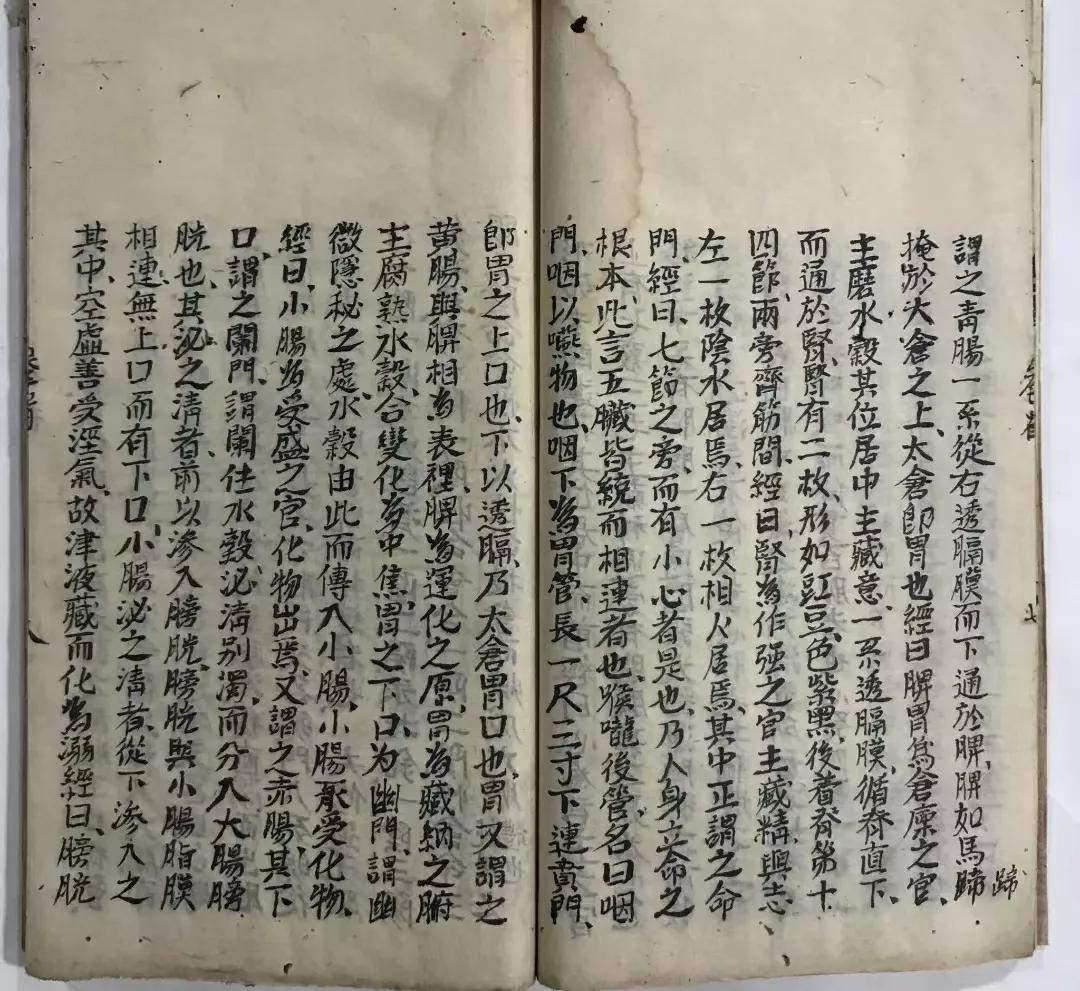 謂之青腸一系從右透膈膜而下通於脾脾如馬蹄
蹄
掩於大倉之上、太倉卽胃也經曰脾胃爲倉廩之官、
主磨水穀其位居中主藏意、一系透膈膜循脊直下、
而通於腎、腎有二枚、形如豇豆、色紫黑、後着脊第十
四節、兩旁齊筋間、經曰腎為作强之官主藏精與志
左一枚陰水居焉、右一枚相火居焉、其中正謂之命
門、經曰、七節之旁、而有小心者是也、乃人身立命之
根本、此言五臟皆統而相連者也、喉嚨後管、名曰咽
門、咽以嚥物也、咽下為胃管、長一尺二寸下連賁門、
卽胃之上口也、下以透膈、乃太倉胃口也、胃又謂之
黃腸、與脾相為表裡、脾為運化之原、胃為藏納之腑
主腐熟水穀、合變化為中焦、胃之下口、为幽門、謂幽
微隱秘之處、水穀由此而傳入小腸、小腸承受化物、
經曰、小腸為受盛之官、化物出焉、又謂之赤腸、其下
口、謂之闌門、謂闌住水穀泌淸别濁、而分入大腸膀
胱也、其泌之淸者、前以渗入膀胱、膀胱與小腸脂膜
相連、無上口而有下口、小腸泌之淸者、從下渗入之
其中、空虛善受溼氣、故津液藏而化為溺經曰、膀胱
七
八